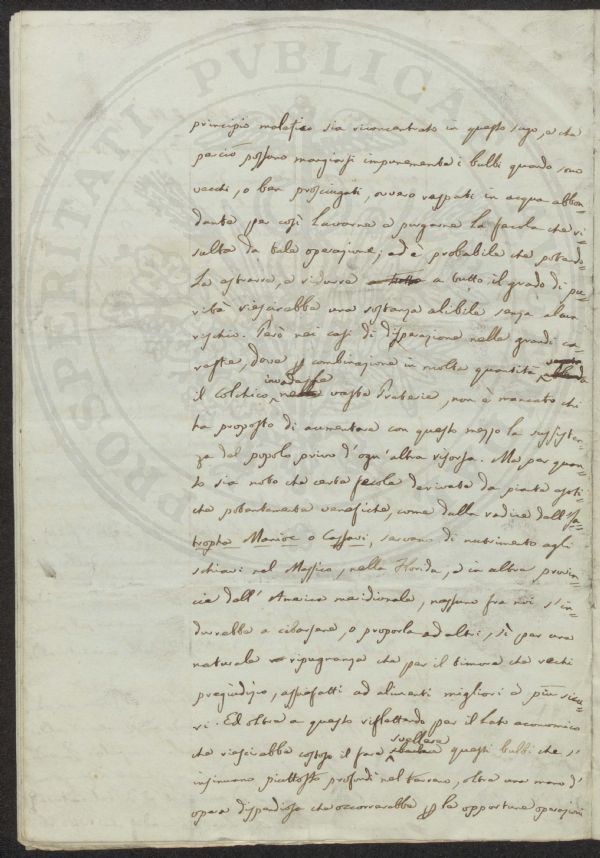 principio malefico sia riconcentrato in questo sugo, e che
perciò possono mangiarsi impunemente i bulbi quando sono
vecchi, o ben prosciugati, ovvero raspati in acqua abbon=
dante per così lavorne e purgarne la fecola che ri=
sulta da tale operazione; ed è probabile che potendo=
la estrarre, e ridurre a tutto il grado di pu=
rità riescirebbe una sostanza alibile senza alcun
rischio. Però nei casi di disperazione nelle grandi ca=
restie, dove p combinazione in molta quantità
il Colchico invadesse vaste Praterie, non è mancato chi
ha proposto di aumentare con questo mezzo la sussisten=
za del popolo privo d'ogn'altra risorsa. Ma per quan=
to sia noto che certa fecola derivata da piante esoti=
che potentemente venefiche, come dalla radice dell'Ja=
tropha Manioc o Cassavi, servano di nutrimento agli
schiavi nel Messico, nella Florida, e in altre provin=
cie dell'America meridionale, nessuno fra noi s'in=
durrebbe a cibarsene, o proporla ad altri, sì per una
naturale ripugnanza che per il timore che vechi
pregiudizi, assuefatti ad alimenti migliori e più sicu=
ri. Ed oltre a questo riflettendo per il lato economico
che riescirebbe costoso il fare svellere questi bulbi che s'
insinuano piuttosto profondi nel terreno, oltre una mano d'
opera dispendiosa che occorrerebbe p le opportune operazioni
PROSPERITATI PVBLICA